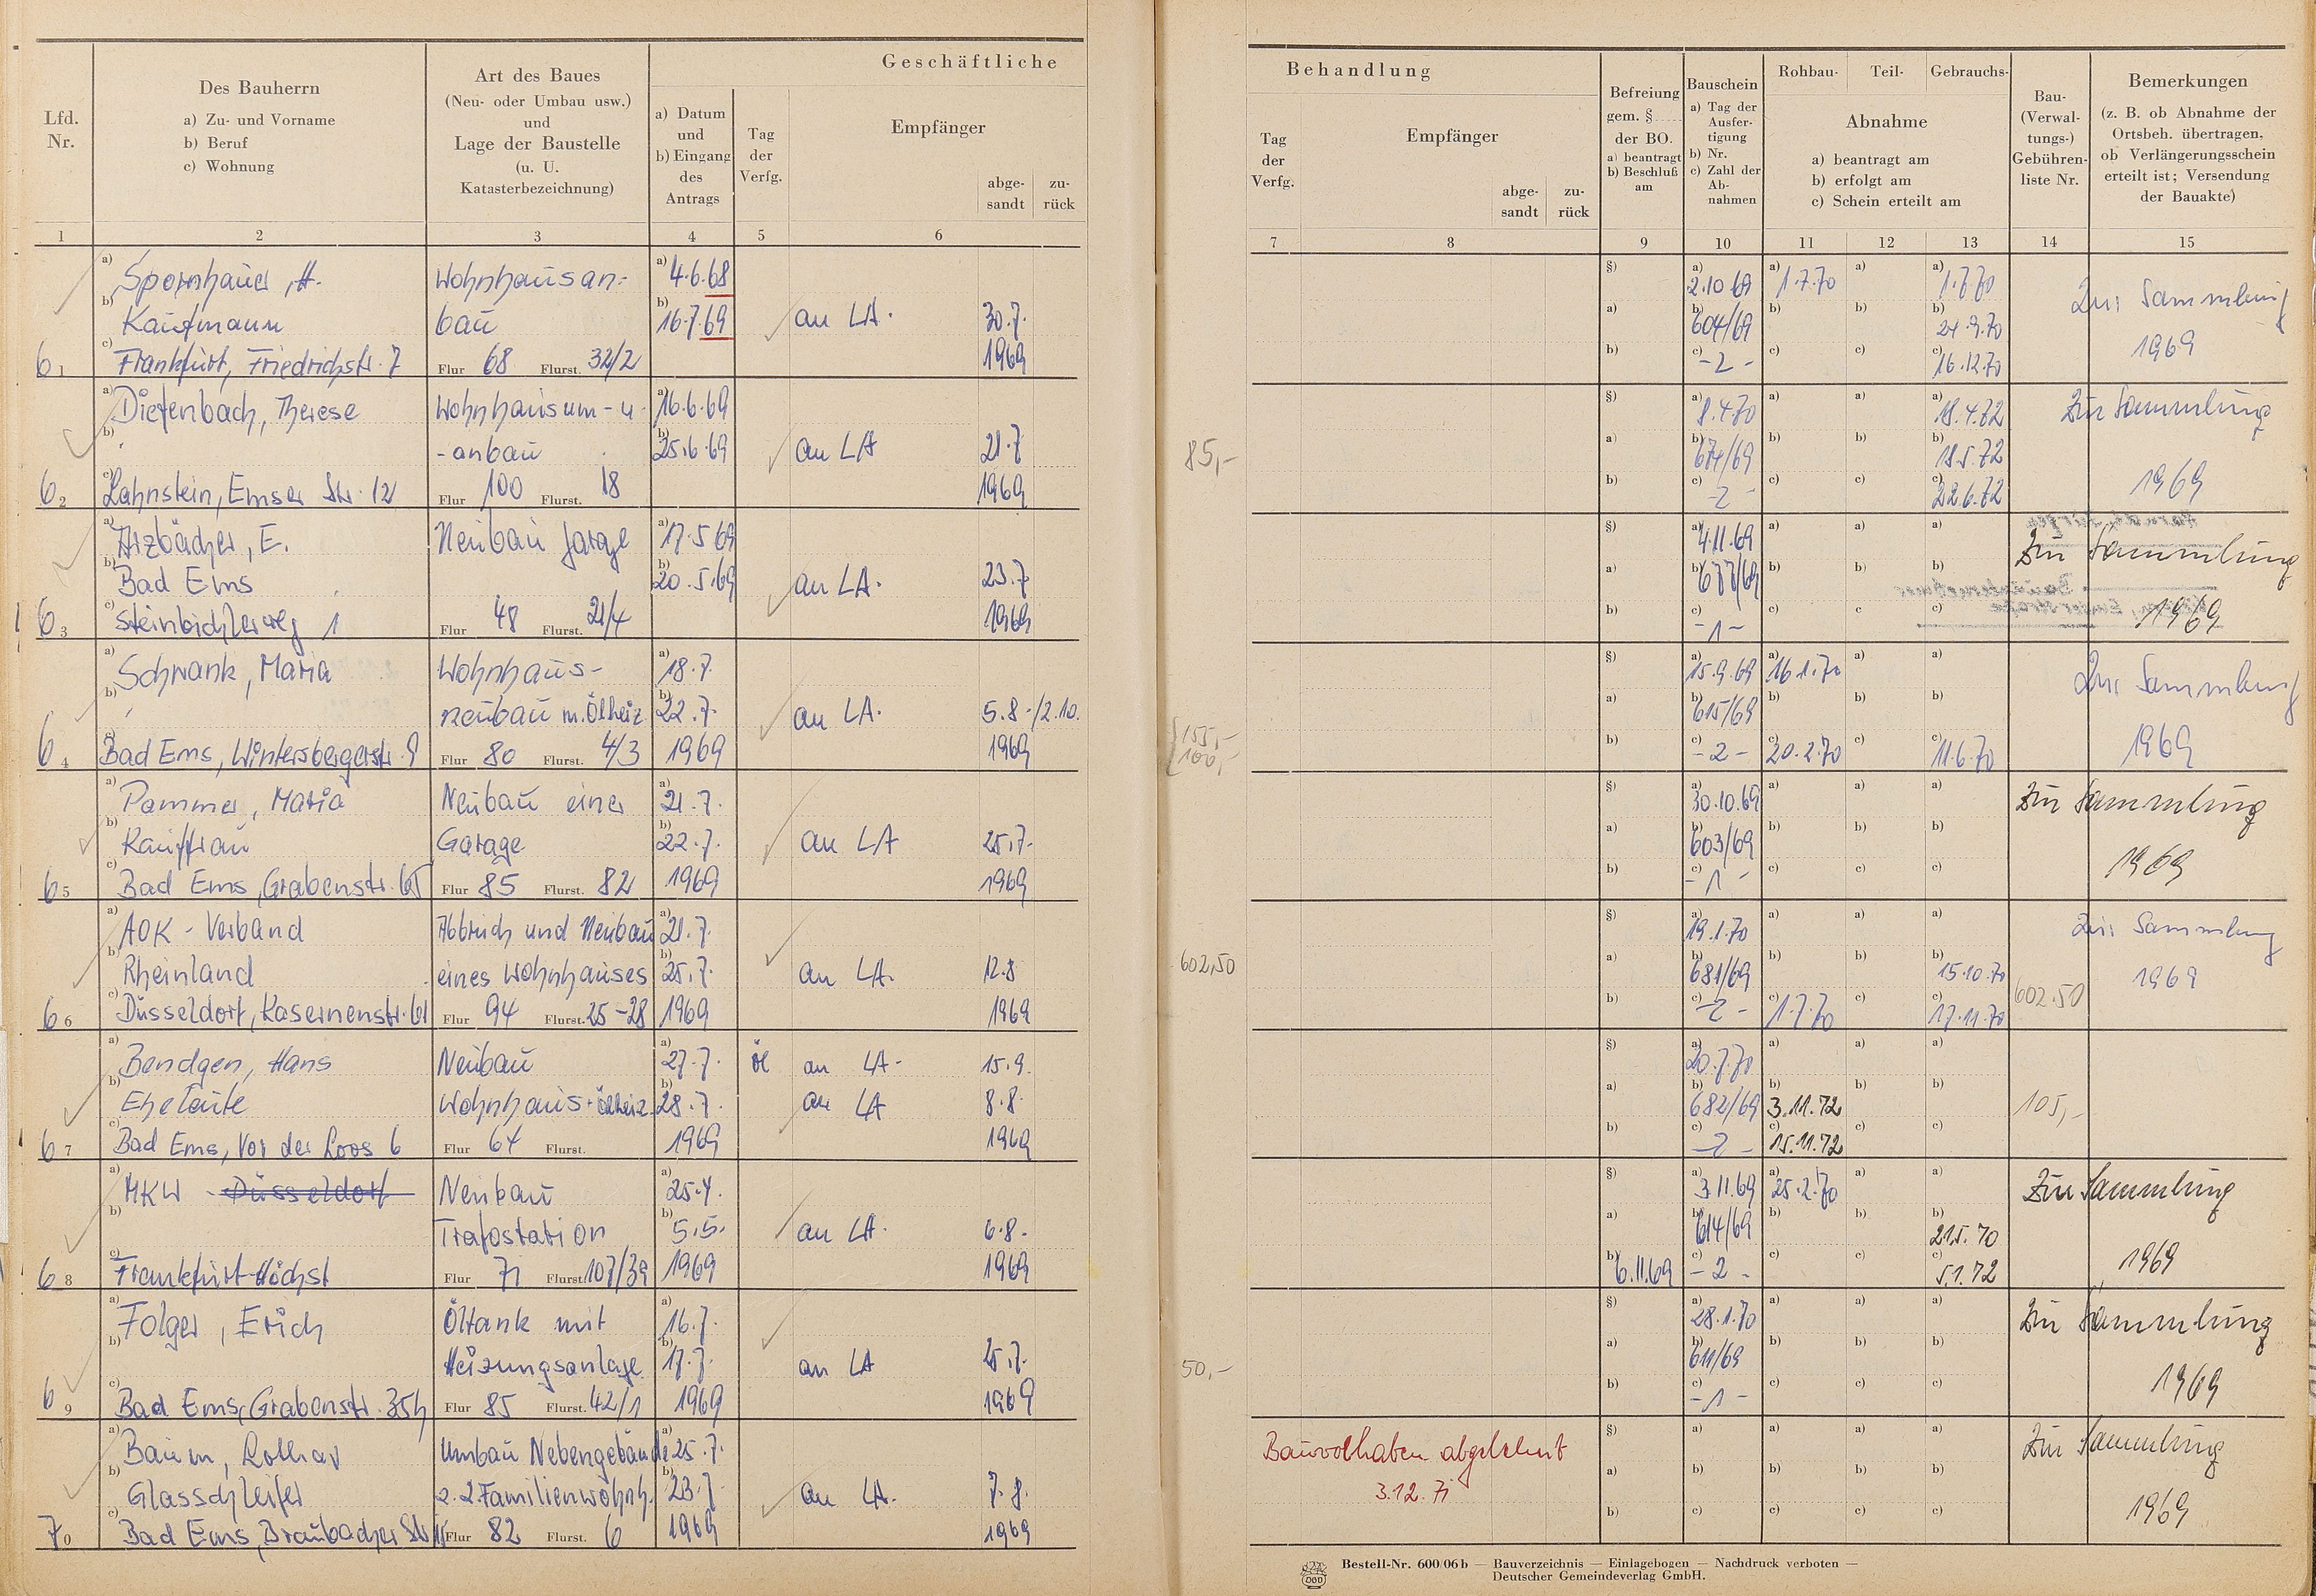 Geschäftliche
Lfd. Nr.
Des Bauherrn
a) Zu- und Vorname
b) Beruf
c) Wohnung
Art des Baues
(Neu- oder Umbau usw.)
und
Lage der Baustelle
(u. U.
Katasterbezeichnung)
a) Datum
und
b) Eingang
des
Antrags
Tag
der
Verfg.
Empfänger
abge-
sandt
zu-
rück
1 2 3 4 5 6
a) Spornhauer, H. Wohnhausan- a) 4.6.68
b) Kaufmann bau b) 16.7.69 an LA. 30.7.
61 c) Frankfurt, Friedrichstr. 7 Flur 68 Flurst. 32/2 1969
a) Diefenbach, Therese Wohnhausum- u. a) 16.6.69
b) -anbau b) 25.6.69 an LA 21.7
62 c) Lahnstein, Emser Str. 12 Flur 100 Flurst. 18 1969
a) Arzbächer, E. Neubau Garage a) 17.5.69
b) Bad Ems b) 20.5.69 an LA. 23.7
63 c) Steinbichlerweg 1 Flur 48 Flurst. 21/4 1969
a) Schwank, Maria Wohnhaus- a) 18.7.
b) neubau m. Ölheiz b) 22.7. an LA. 5.8./2.10.
64 c) Bad Ems, Wintersbergerstr. 9 Flur 80 Flurst. 4/3 1969 1969
a) Pommer, Maria Neubau einer a) 21.7.
b) Kauffrau Garage b) 22.7. an LA 25.7.
65 c) Bad Ems, Grabenstr. 65 Flur 85 Flurst. 82 1969 1969
a) AOK - Verband Abbruch und Neubau a) 21.7.
b) Rheinland eines Wohnhauses b) 25.7. an LA. 12.8
66 c) Düsseldorf, Kasernenstr. 61 Flur 94 Flurst. 25-28 1969 1969
a) Bendgen, Hans Neubau a) 27.7. Öl an LA- 15.9.
b) Eheleute Wohnhaus + Ölheiz. b) 28.7. an LA 8.8.
67 c) Bad Ems, Vor der Loos 6 Flur 64 Flurst. 1969 1969
a) MKW - Düsseldorf Neubau a) 25.4.
b) Trafostation b) 5.5. an LA. 6.8.
68 c) Frankfurt-Höchst Flur 71 Flurst. 107/39 1969 1969
a) Folger, Erich Öltank mit a) 16.7.
b) Heizungsanlage b) 17.7. an LA 25.7.
69 c) Bad Ems, Grabenstr. 35h Flur 85 Flurst. 42/1 1969 1969
a) Baum, Lothar Umbau Nebengebäude a) 25.7.
b) Glasschleifer z. 2. Familienwohnh. b) 23.7. an LA. 7.8.
70 c) Bad Ems, Braubacher Str. Flur 82 Flurst. 6 1969 1969
Behandlung
Tag
der
Verfg.
Empfänger
abge-
sandt
zu-
rück
Befreiung
gem. §
der BO.
a) beantragt
b) Beschluß
am
Bauschein
a) Tag der
Ausfer-
tigung
b) Nr.
c) Zahl der
Ab-
nahmen
Rohbau- Teil- Gebrauchs-
Abnahme
a) beantragt am
b) erfolgt am
c) Schein erteilt am
Bau-
(Verwal-
tungs-)
Gebühren-
liste Nr.
Bemerkungen
(z. B. ob Abnahme der
Ortsbeh. übertragen,
ob Verlängerungsschein
erteilt ist; Versendung
der Bauakte)
7 8 9 10 11 12 13 14 15
§) a) 2.10.69 a) 1.7.70 a) a) 1.7.70 Zur Sammlung
a) b) 604/69 b) b) b) 24.9.70 1969
b) c) -2- c) c) c) 16.12.70
§) a) 8.4.70 a) a) a) 18.4.72 Zur Sammlung
85,- a) b) 674/69 b) b) b) 18.5.72
b) c) -2- c) c) c) 22.6.72 1969
§) a) 4.11.69 a) a) a) Zur Sammlung
a) b) 677/69 b) b) b)
b) c) -1- c) c c) 1969
§) a) 15.9.69 a) 16.1.70 a) a) Zur Sammlung
155,- a) b) 615/69 b) b) b)
100,- b) c) -2- c) 20.2.70 c) c) 11.6.70 1969
§) a) 30.10.69 a) a) a) Zur Sammlung
a) b) 603/69 b) b) b)
b) c) -1- c) c) c) 1969
§) a) 19.1.70 a) a) a) Zur Sammlung
602,50 a) b) 681/69 b) b) b) 15.10.70 1969
b) c) -2- c) 1.7.70 c) c) 17.11.70 602.50
§) a) 20.7.70 a) a) a)
a) b) 682/69 b) 3.11.72 b) b) 105,-
b) c) -2- c) 15.11.72 c) c)
§) a) 3.11.69 a) 25.2.70 a) a) Zur Sammlung
a) b) 614/69 b) b) b) 21.5.70
b) 6.11.69 c) -2- c) c) c) 5.1.72 1969
§) a) 28.1.70 a) a) a) Zur Sammlung
50,- a) b) 611/69 b) b) b)
b) c) -1- c) c) c) 1969
Bauvorhaben abgelehnt §) a) a) a) a) Zur Sammlung
3.12.71 a) b) b) b) b)
b) c) c) c) c) 1969
Bestell-Nr. 600/06 b — Bauverzeichnis — Einlagebogen — Nachdruck verboten —
Deutscher Gemeindeverlag GmbH.